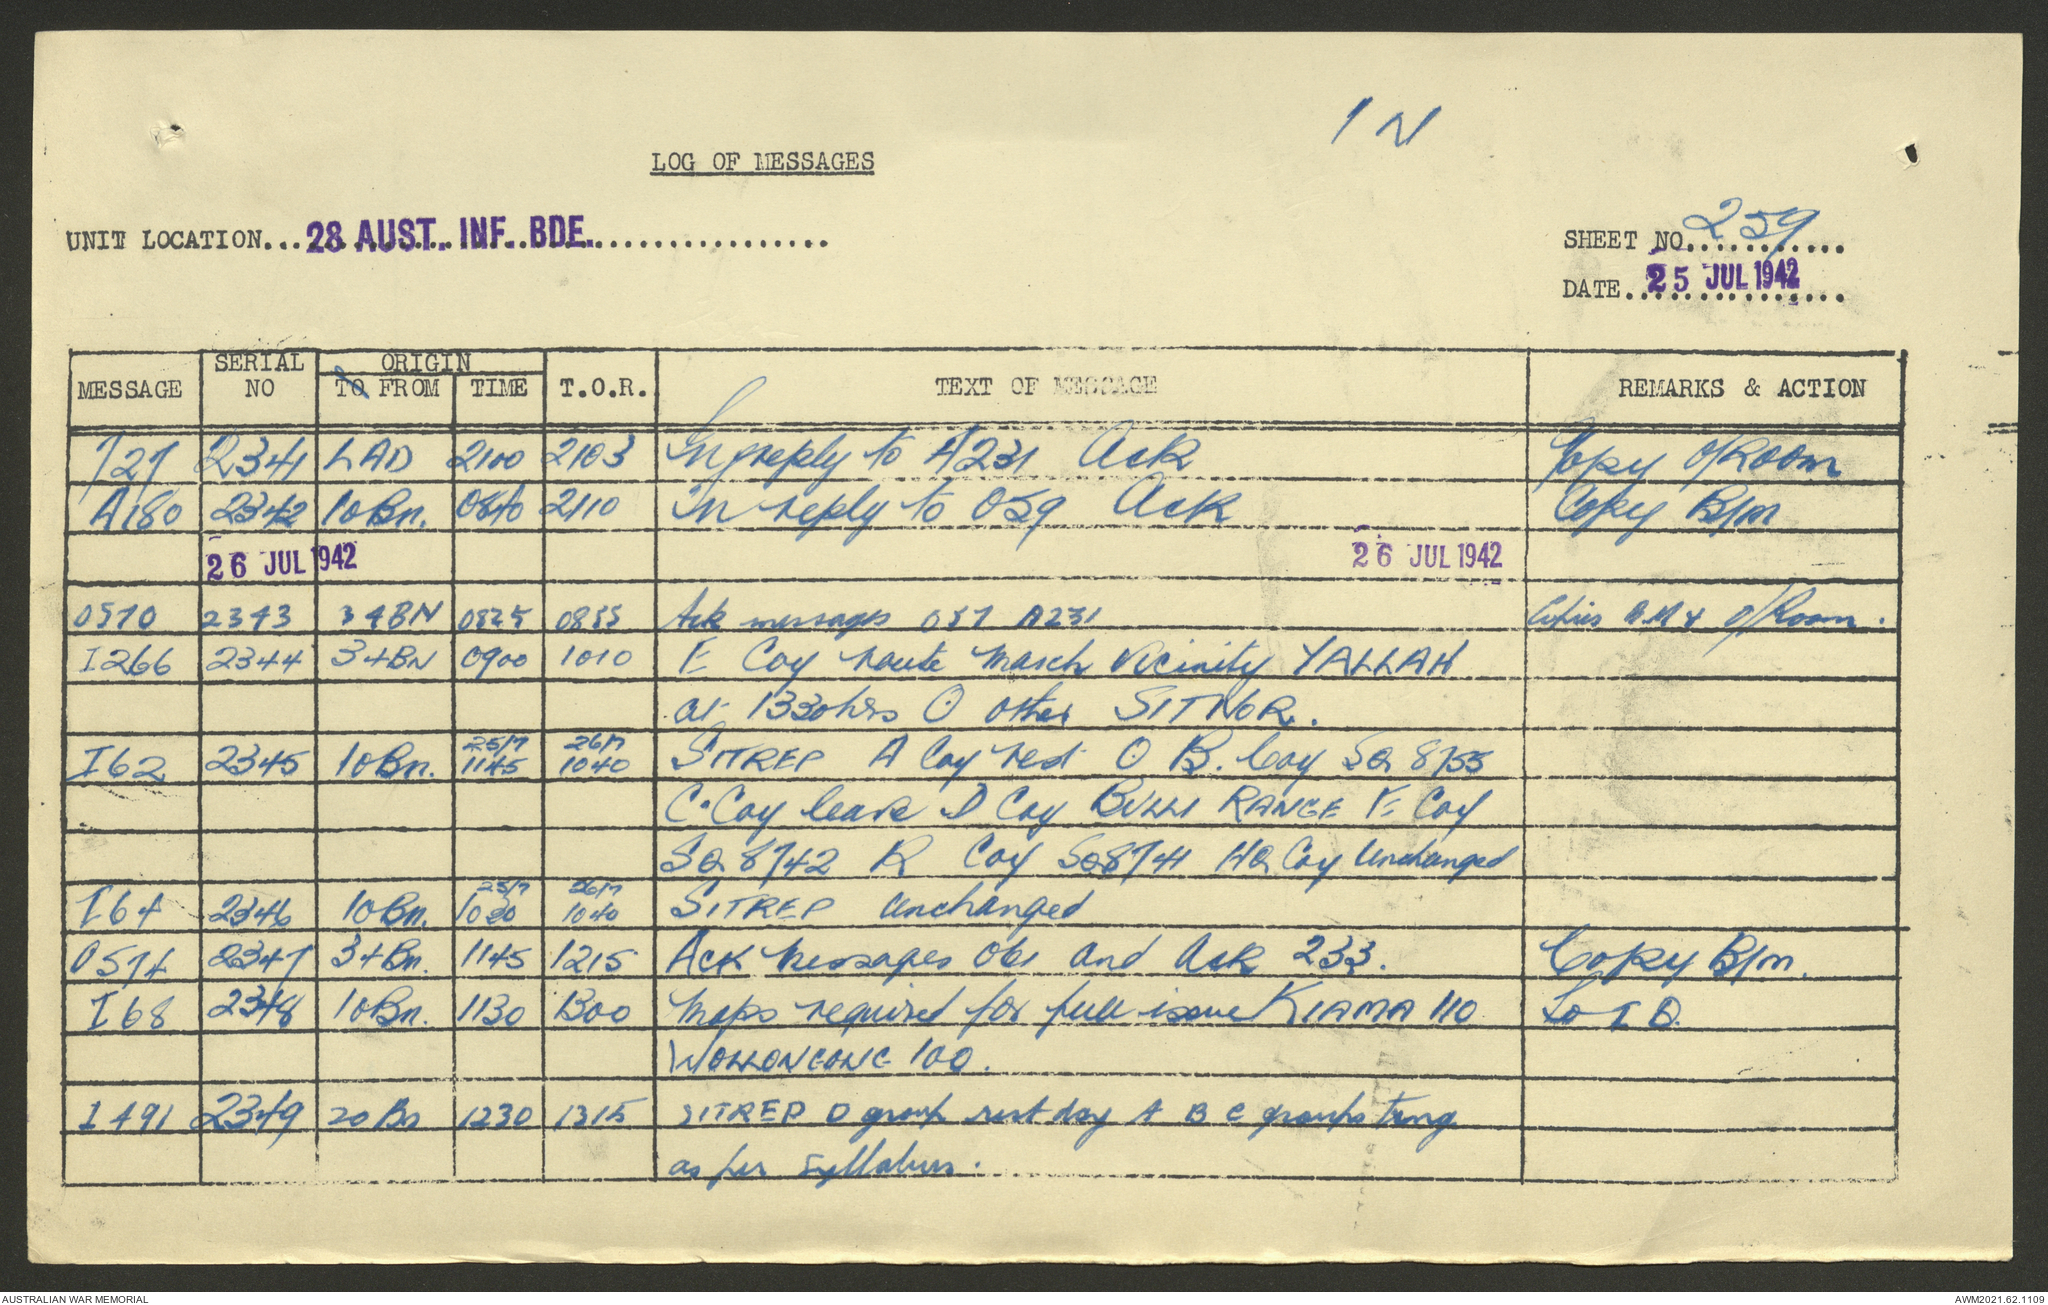 IN
LOG OF MESSAGES
UNIT LOCATION... 28 AUST. INF. BDE.
SHEET NO. 259
DATE 25 JUL 1942
MESSAGE SERIAL NO ORIGIN TO FROM TIME T.O.R. TEXT OF MESSAGE REMARKS & ACTION
2341 LAD 2100 2103 In reply to A231 Ack Copy O/Room
A180 2342 10Bn. 2110 In reply to 059 Ack Copy B/m
26 JUL 1942 26 JUL 1942
0570 2343 34BN 0825 0855 Ack messages 057 A231 Copies B.M & O/Room.
I266 2344 34BN 0900 1010 E Coy route march vicinity YALLAH
at 1330hrs O other SITNOR.
I62 2345 10Bn. 25/7 1145 26/7 1040 SITREP A Coy rest O B. Coy SQ 8755
C. Coy leave D Coy BULLI RANGE E Coy
SQ 8742 R Coy SQ8741 HQ Coy Unchanged
I64 2346 10Bn. 25/7 1030 26/7 1040 SITREP Unchanged
0574 2347 34Bn. 1145 1215 Ack messages 061 and Ack 233. Copy B/m.
I68 2348 10Bn. 1130 1300 Maps required for full issue KIAMA 110 to I O.
WOLLONGONG 100.
I491 2349 20 Bn 1230 1315 SITREP D group rest day A B C groups trng
as per syllabus.
AUSTRALIAN WAR MEMORIAL AWM2021.62.1109